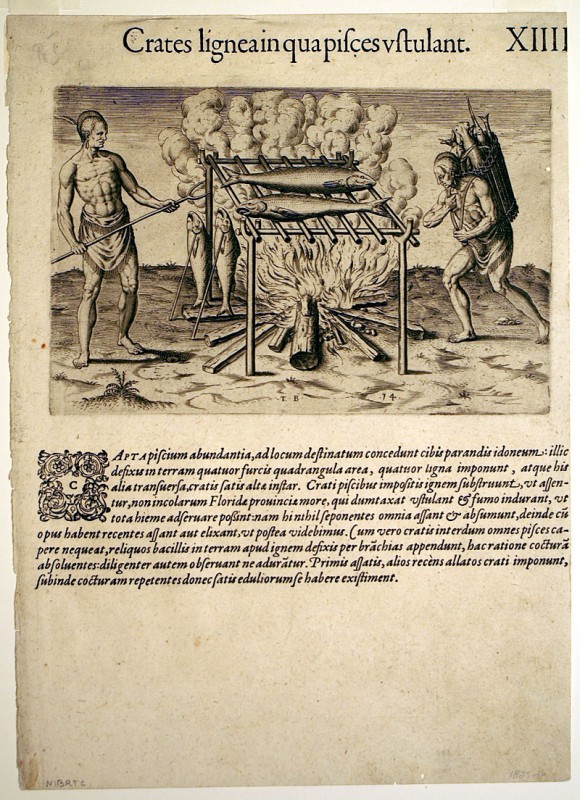 Crates lignea in qua pisces vstulant. XIIII
T. B 14
CAPTA piscium abundantia, ad locum destinatum concedunt cibis parandis idoneum: illic
defixis in terram quatuor furcis quadrangula area, quatuor ligna imponunt, atque his
alia transuersa, cratis satis altæ instar. Crati piscibus impositis ignem substruunt, vt assen-
tur, non incolarum Floridæ prouinciæ more, qui dumtaxat vstulant & fumo indurant, vt
tota hieme adseruare possint: nam hi nihil seponentes omnia assant & absumunt, deinde cū
opus habent recentes assant aut elixant, vt postea videbimus. Cum vero cratis interdum omnes pisces ca-
pere nequeat, reliquos bacillis in terram apud ignem defixis per brāchias appendunt, hac ratione cocturā
absoluentes: diligenter autem obseruant ne adurātur. Primis assatis, alios recèns allatos crati imponunt,
subinde cocturam repetentes donec satis eduliorum se habere existiment.